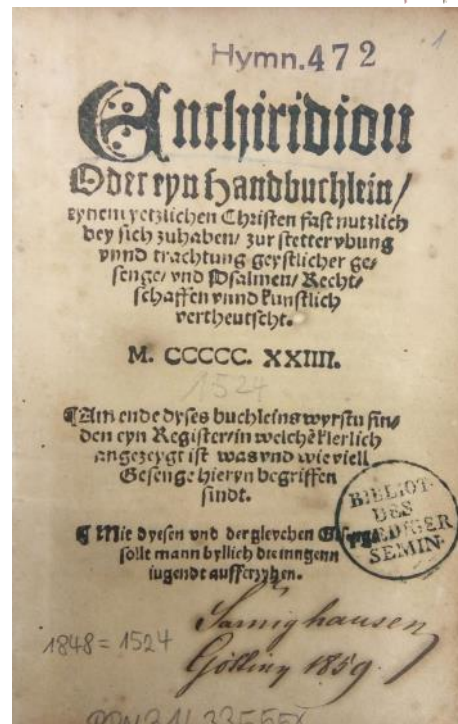 Hymn. 472
1
Enchiridion
Oder eyn Handbuchlein/
eynem yetzlichen Christen fast nutzlich
bey sich zuhaben/ zur stetter vbung
vnnd trachtung geystlicher ge/
senge/ vnd Psalmen/ Recht/
schaffen vnnd kunstlich
vertheutscht.
M. CCCCC. XXIIII.
1524
¶Am ende dyses buchleins wyrstu fin/
den eyn Register/ in welchē klerlich
angezeygt ist was vnd wie viell
Gesenge hieryn begriffen
sindt.
BIBLIOT.
DES
PREDIGER
SEMIN.
¶ Mit dyesen vnd der gleychen Gesenge
sollt mann byllich die inngenn
iugendt aufferzyhen.
1848 = 1524
1859.